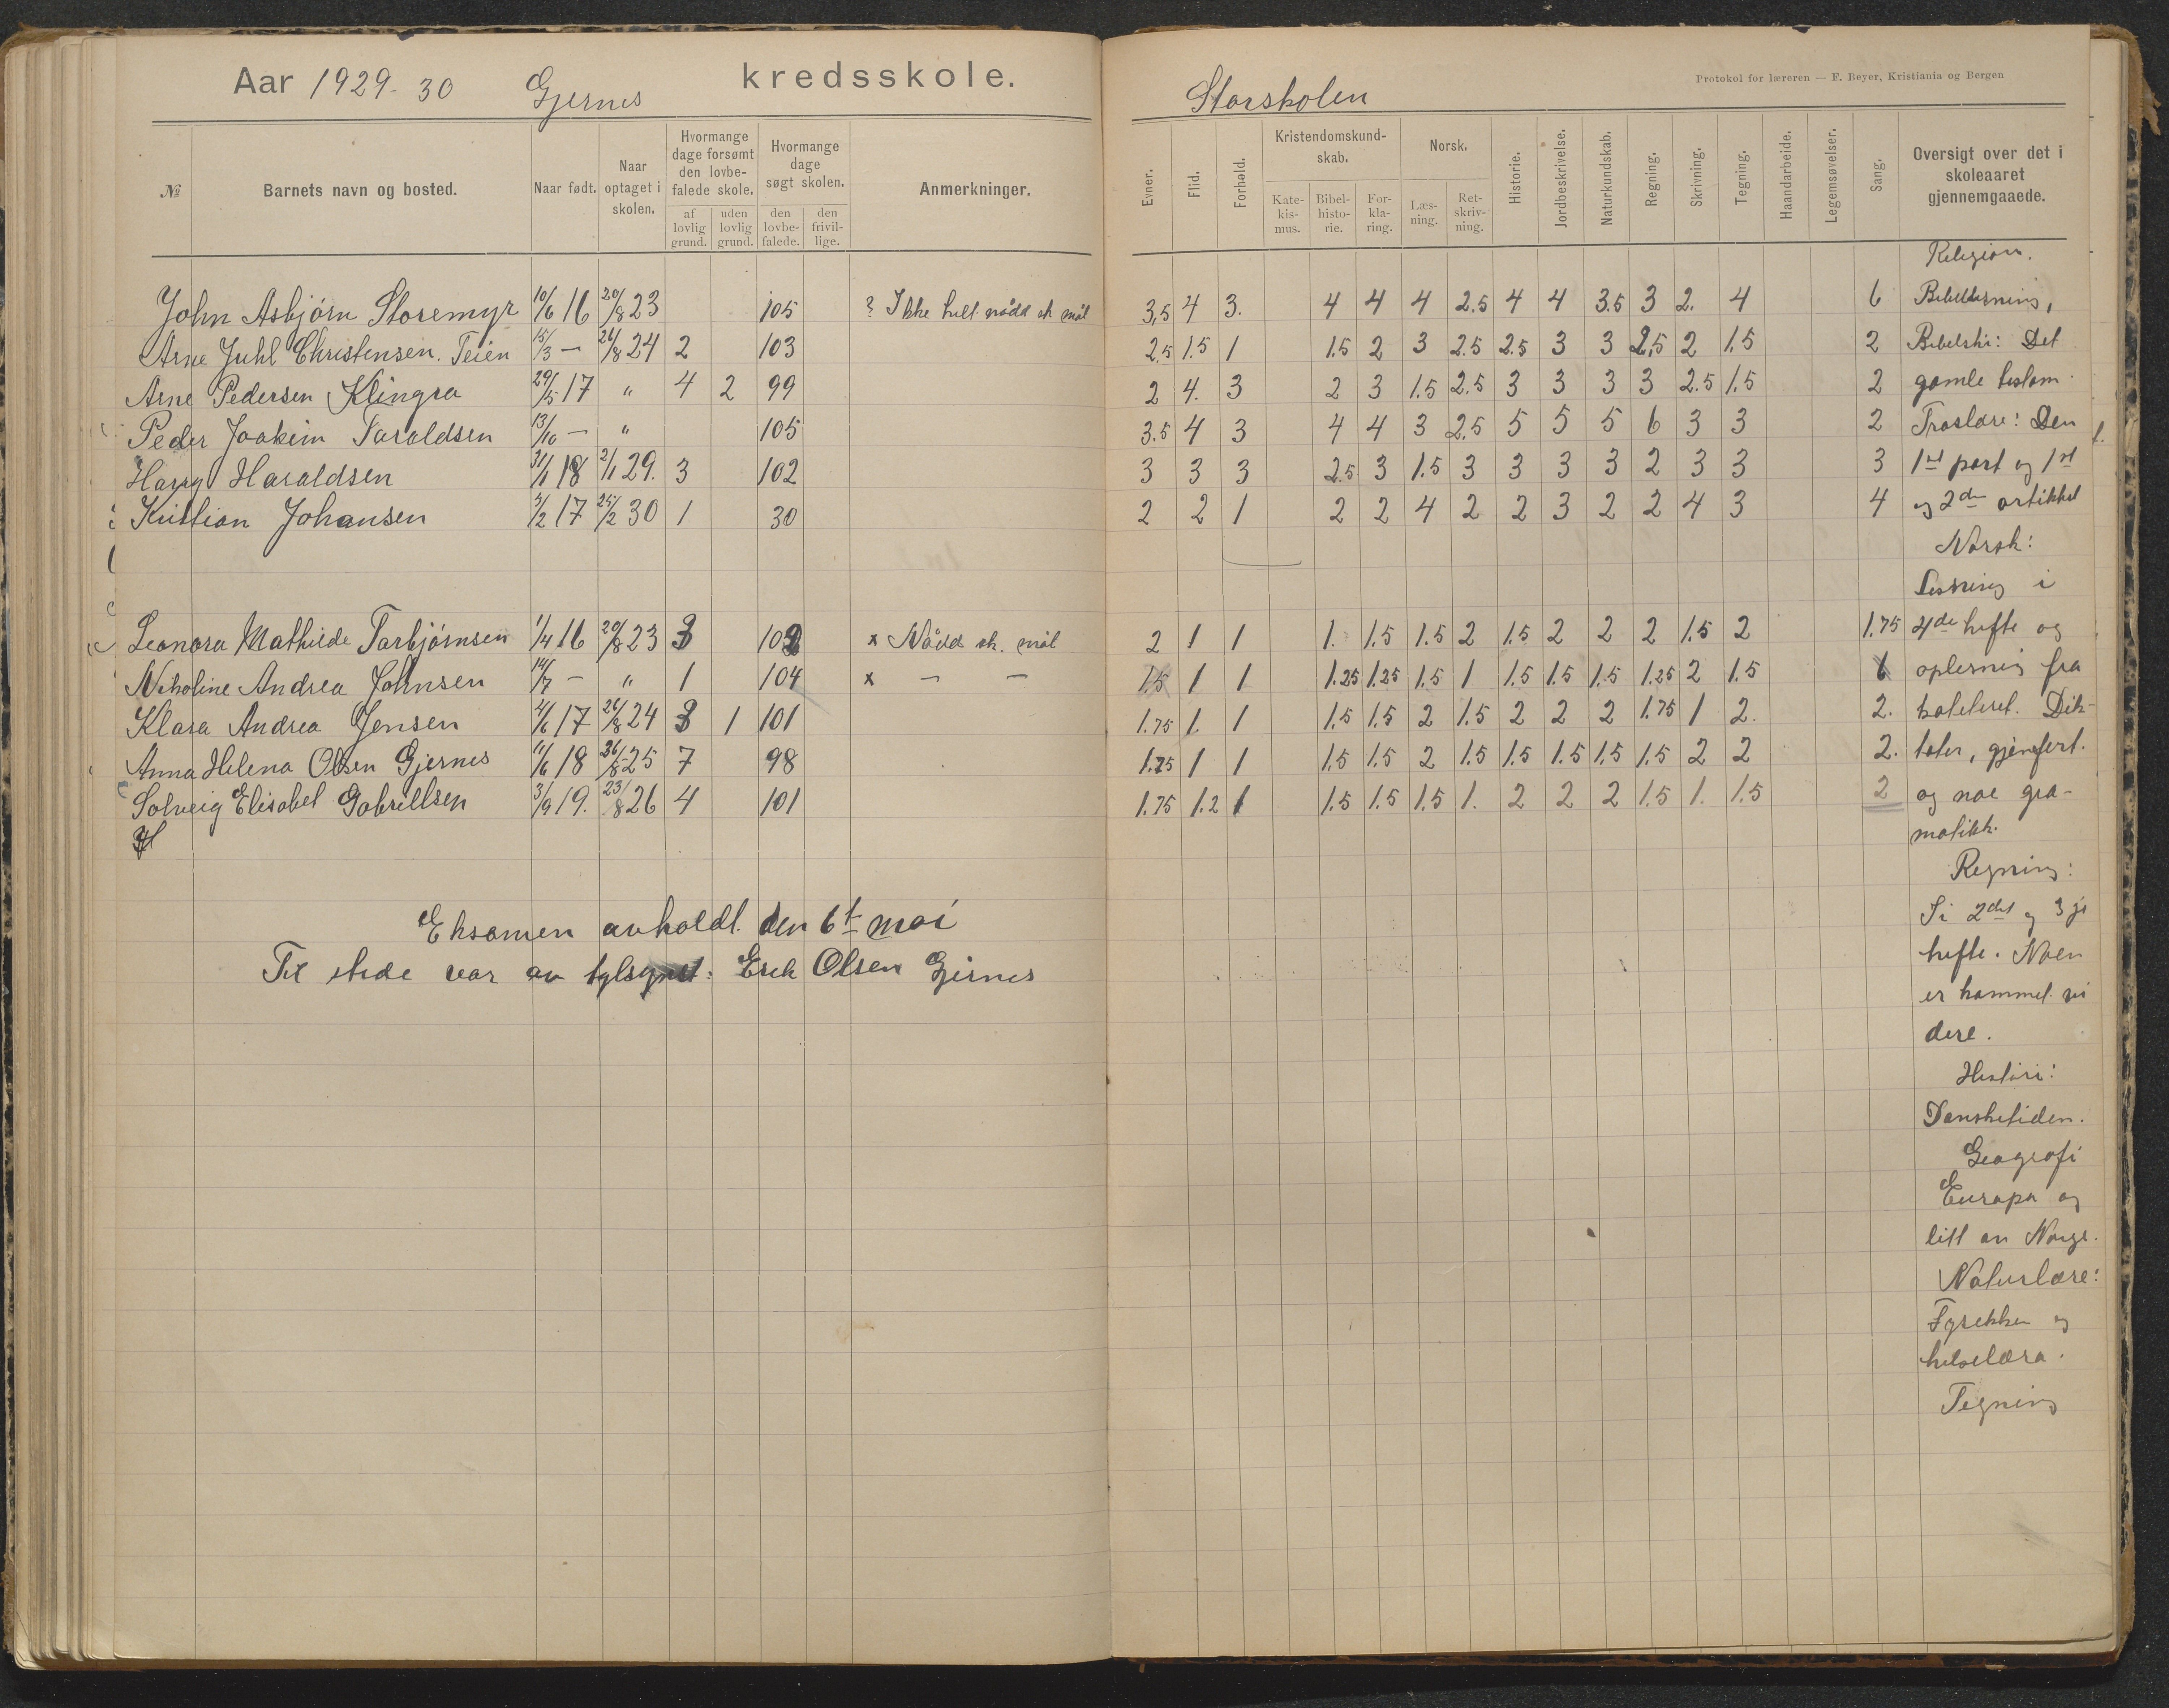 Aar 1929-30 Gjernes kredsskole.
Storskolen
Protokol for læreren — F. Beyer, Kristiania og Bergen
№ Barnets navn og bosted. Naar født. Naar optaget i skolen. Hvormange dage forsømt den lovbefalede skole. af lovlig grund. uden lovlig grund. Hvormange dage søgt skolen. den lovbefalede. den frivillige. Anmerkninger.
Evner. Flid. Forhold. Kristendomskundskab. Katekismus. Bibelhistorie. Forklaring. Norsk. Læsning. Retskrivning. Historie. Jordbeskrivelse. Naturkundskab. Regning. Skrivning. Tegning. Haandarbeide. Legemsøvelser. Sang. Oversigt over det i skoleaaret gjennemgaaede.
John Asbjørn Storemyr 10/6 16 20/8 23 105 ? Ikke helt nådd sk mål 3,5 4 3. 4 4 4 2.5 4 4 3.5 3 2. 4 6
Arne Juhl Christensen. Teien 15/3 — 26/8 24 2 103 2.5 1.5 1 1.5 2 3 2.5 2.5 3 3 2,5 2 1.5 2
Arne Pedersen Klingra 29/5 17 " 4 2 99 2 4. 3 2 3 1.5 2.5 3 3 3 3 2.5 1.5 2
Peder Joakim Taraldsen 13/10 — " 105 3.5 4 3 4 4 3 2.5 5 5 5 6 3 3 2
Harry Haraldsen 31/1 18 2/1 29. 3 102 3 3 3 2.5 3 1.5 3 3 3 3 2 3 3 3
Kristian Johansen 3/2 17 25/2 30 1 30 2 2 1 2 2 4 2 2 3 2 2 4 3 4
Leonora Mathilde Torbjørnsen 1/4 16 20/8 23 3 102 x Nådd sk. mål 2 1 1 1. 1.5 1.5 2 1.5 2 2 2 1.5 2 1.75
Nikoline Andrea Johnsen 14/7 — " 1 104 x — — 1.5 1 1 1.25 1.25 1.5 1 1.5 1.5 1.5 1.25 2 1.5 1
Klara Andrea Jensen 4/6 17 26/8 24 3 1 101 1.75 1. 1 1.5 1.5 2 1.5 2 2 2 1.75 1 2. 2.
Anna Helena Olsen Gjernes 11/6 18 26/8 25 7 98 1.75 1 1 1.5 1.5 2 1.5 1.5 1.5 1.5 1.5 2 2 2.
Solveig Elisabet Gabrillsen 3/9 19. 23/8 26 4 101 1.75 1.2 1 1.5 1.5 1.5 1. 2 2 2 1.5 1. 1.5 2
Eksamen avholdt den 6t mai
Til stede var av tylsynet: Erik Olsen Gjernes
Religion.
Bibellesning,
Bibelshi: Det
gamle testam.
Troslære: Den
1st part og 1st
og 2den artikkel
Norsk:
Lesning i
4de hefte og
oplesning fra
kateteret. Dik-
tater, gjenfort.
og noe gra-
matikk.
Regning:
I 2det og 3je
hefte. Noen
er kommet vi
dere.
Histori:
Dansketiden.
Geografi
Europa og
litt av Norge.
Naturlære:
Fysikken og
helselæra.
Tegning